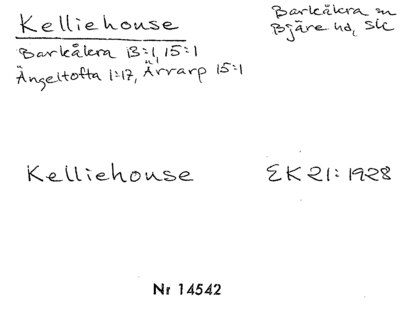 Kelliehouse
Barkåkra 13:1, 15:1
Ängeltofta 1:17, Ärrarp 15:1
Barkåkra sn
Bjäre hd, Sk
Kelliehouse
EK 21: 1928
Nr 14542